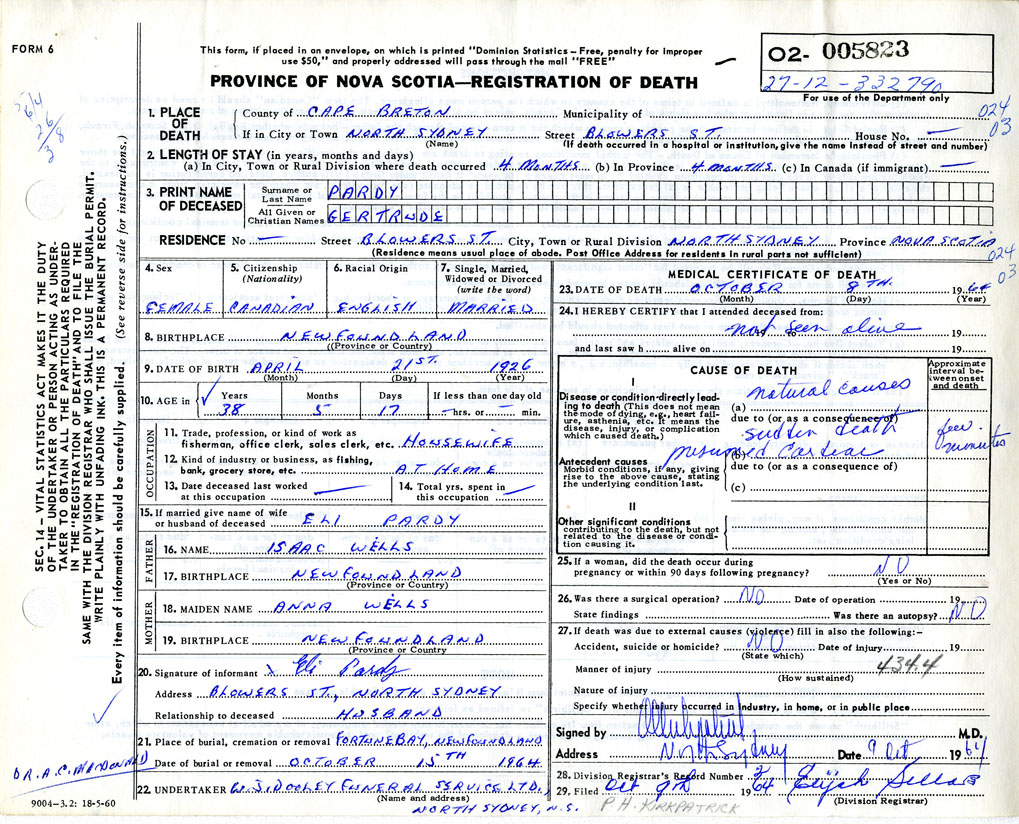 FORM 6
This form, if placed in an envelope, on which is printed "Dominion Statistics – Free, penalty for improper
use $50," and properly addressed will pass through the mail "FREE"
PROVINCE OF NOVA SCOTIA—REGISTRATION OF DEATH
02- 005823
27-12-332790
For use of the Department only
024
03
1. PLACE OF DEATH
County of CAPE BRETON Municipality of
If in City or Town NORTH SYDNEY Street BLOWERS ST. House No. —
(Name) (If death occurred in a hospital or institution, give the name instead of street and number)
2. LENGTH OF STAY (in years, months and days)
(a) In City, Town or Rural Division where death occurred 4 MONTHS (b) In Province 4 MONTHS. (c) In Canada (if immigrant) —
3. PRINT NAME OF DECEASED
Surname or Last Name PARDY
All Given or Christian Names GERTRUDE
RESIDENCE No — Street BLOWERS ST. City, Town or Rural Division NORTH SYDNEY Province NOVA SCOTIA
(Residence means usual place of abode. Post Office Address for residents in rural parts not sufficient)
024
03
4. Sex FEMALE
5. Citizenship (Nationality) CANADIAN
6. Racial Origin ENGLISH
7. Single, Married, Widowed or Divorced (write the word) MARRIED
8. BIRTHPLACE NEWFOUNDLAND
(Province or Country)
9. DATE OF BIRTH APRIL 21ST. 1926
(Month) (Day) (Year)
10. AGE in Years Months Days If less than one day old
38 5 17 — hrs. or — min.
OCCUPATION
11. Trade, profession, or kind of work as
fisherman, office clerk, sales clerk, etc. HOUSEWIFE
12. Kind of industry or business, as fishing,
bank, grocery store, etc. AT HOME
13. Date deceased last worked at this occupation —
14. Total yrs. spent in this occupation —
15. If married give name of wife
or husband of deceased ELI PARDY
FATHER
16. NAME ISAAC WELLS
17. BIRTHPLACE NEWFOUNDLAND
(Province or Country)
MOTHER
18. MAIDEN NAME ANNA WELLS
19. BIRTHPLACE NEWFOUNDLAND
(Province or Country
20. Signature of informant x Eli Pardy
Address BLOWERS ST., NORTH SYDNEY
Relationship to deceased HUSBAND
21. Place of burial, cremation or removal FORTUNE BAY, NEWFOUNDLAND
Date of burial or removal OCTOBER 15TH 1964
22. UNDERTAKER W. J. DOOLEY FUNERAL SERVICE LTD.
(Name and address)
NORTH SYDNEY, N.S.
MEDICAL CERTIFICATE OF DEATH
23. DATE OF DEATH OCTOBER 8TH. 1964
(Month) (Day) (Year)
24. I HEREBY CERTIFY that I attended deceased from:
not seen alive 19
and last saw h alive on 19
CAUSE OF DEATH
Approximate interval between onset and death
I
Disease or condition directly leading to death (This does not mean the mode of dying, e.g., heart failure, asthenia, etc. It means the disease, injury, or complication which caused death.)
(a) natural causes
due to (or as a consequence of)
sudden death
few minutes
presumed Cardiac
Antecedent causes
Morbid conditions, if any, giving rise to the above cause, stating the underlying condition last.
(b)
due to (or as a consequence of)
(c)
II
Other significant conditions
contributing to the death, but not related to the disease or condition causing it.
25. If a woman, did the death occur during
pregnancy or within 90 days following pregnancy? NO
(Yes or No)
26. Was there a surgical operation? NO Date of operation 19
State findings Was there an autopsy? NO
27. If death was due to external causes (violence) fill in also the following:–
Accident, suicide or homicide? NO Date of injury 19
(State which)
Manner of injury 434.4
(How sustained)
Nature of injury
Specify whether injury occurred in industry, in home, or in public place
Signed by M.D.
Address North Sydney Date 9 Oct 1964
28. Division Registrar's Record Number
29. Filed Oct 9th 1964
(Division Registrar)
P.H. KIRKPATRICK
SEC. 14 – VITAL STATISTICS ACT MAKES IT THE DUTY
OF THE UNDERTAKER OR PERSON ACTING AS UNDER-
TAKER TO OBTAIN ALL THE PARTICULARS REQUIRED
IN THE "REGISTRATION OF DEATH" AND TO FILE THE
SAME WITH THE DIVISION REGISTRAR WHO SHALL ISSUE THE BURIAL PERMIT.
WRITE PLAINLY WITH UNFADING INK. THIS IS A PERMANENT RECORD.
Every item of information should be carefully supplied. (See reverse side for instructions.)
DR. A.C. MACDONALD
9004-3.2: 18-5-60